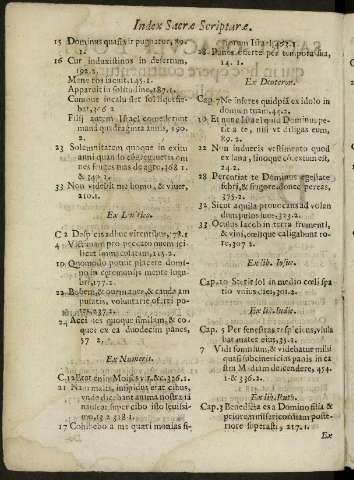 Index Sacræ Scripturæ.
15 Dominus quasi vir pugnator, 89.
1.
16 Cur induxistinos in desertum,
192.2.
Mane ros iacuit, 145.1.
Apparuit in solitudine, 187.1.
Cumque incaluisset sol liquefie-
bat, 2
Filij autem Israel comederunt
manà quadraginta annis, 190.
2.
23 Solemnitatem quoque in exitu
anni quando congregaueris om
nes fruges tuas de agro, 168 1.
& 340 1.
33 Non videbit me homo, & viuet,
210.1.
Ex Leuitico.
C 2 178.1
4 Victimam pro peccato
immaculatam, 115.2.
10 Quomodo potui placere domi-
no in ceremonijs mente lugu-
bri, 177.2.
22 Bouem, & ouem aure, & cauda am
putatis, voluntarie offerri po-
test, 237.1.
24 Accipies quoque similam, & co-
ques ex ea duodecim panes,
57 2.
Ex Numeris.
C. 12 Erat enim Moises &c. 326.1.
21 Nam manna
vnde dicebant anima nostra ia
nauseat super cibo isto leuissi-
mo, 318 1.
17 Cohibebo a me quæri monias fi-
liorum Israel, 1.
28 Panes offerte per tempora sua,
14. 1.
Ex Deuteron.
Cap. 7 Ne inferes quidpiã ex idolo in
domum tuam, 2.
10 Et nunc Israel quid Dominus pe-
tit a te, nisi vt diligas eum,
89.2.
22 Non indueris vestimento quod
ex lana, linoque contextum est,
24.2.
28 Percutiat te Dominus egestate
febri, & frigore donec pereas,
375.2.
32 Sicut aquila prouocans ad volan
dum pulos suos, 323.2.
33 Oculus Iacob in terra frumenti,
& vini, cœlique caligabunt ro-
re, 307 2.
Ex lib. Iosue.
Cap. 10 Stetit sol in medio cœli spa
tio vnius diei, 301.2.
Ex lib. Iudic.
Cap. 5 Per fenestras respiciens, vlula
bat mater eius, 35.2.
7 Vidi somnium, & videbatur mihi
quasi subcinericius panis in ca
stra Madiam descendere, 454.
1 & 336.2.
Ex lib. Ruth.
Cap. 3 Benedicta es a Domino filia &
priorem misericordiam poste-
riore superasti, 217.1.
Ex